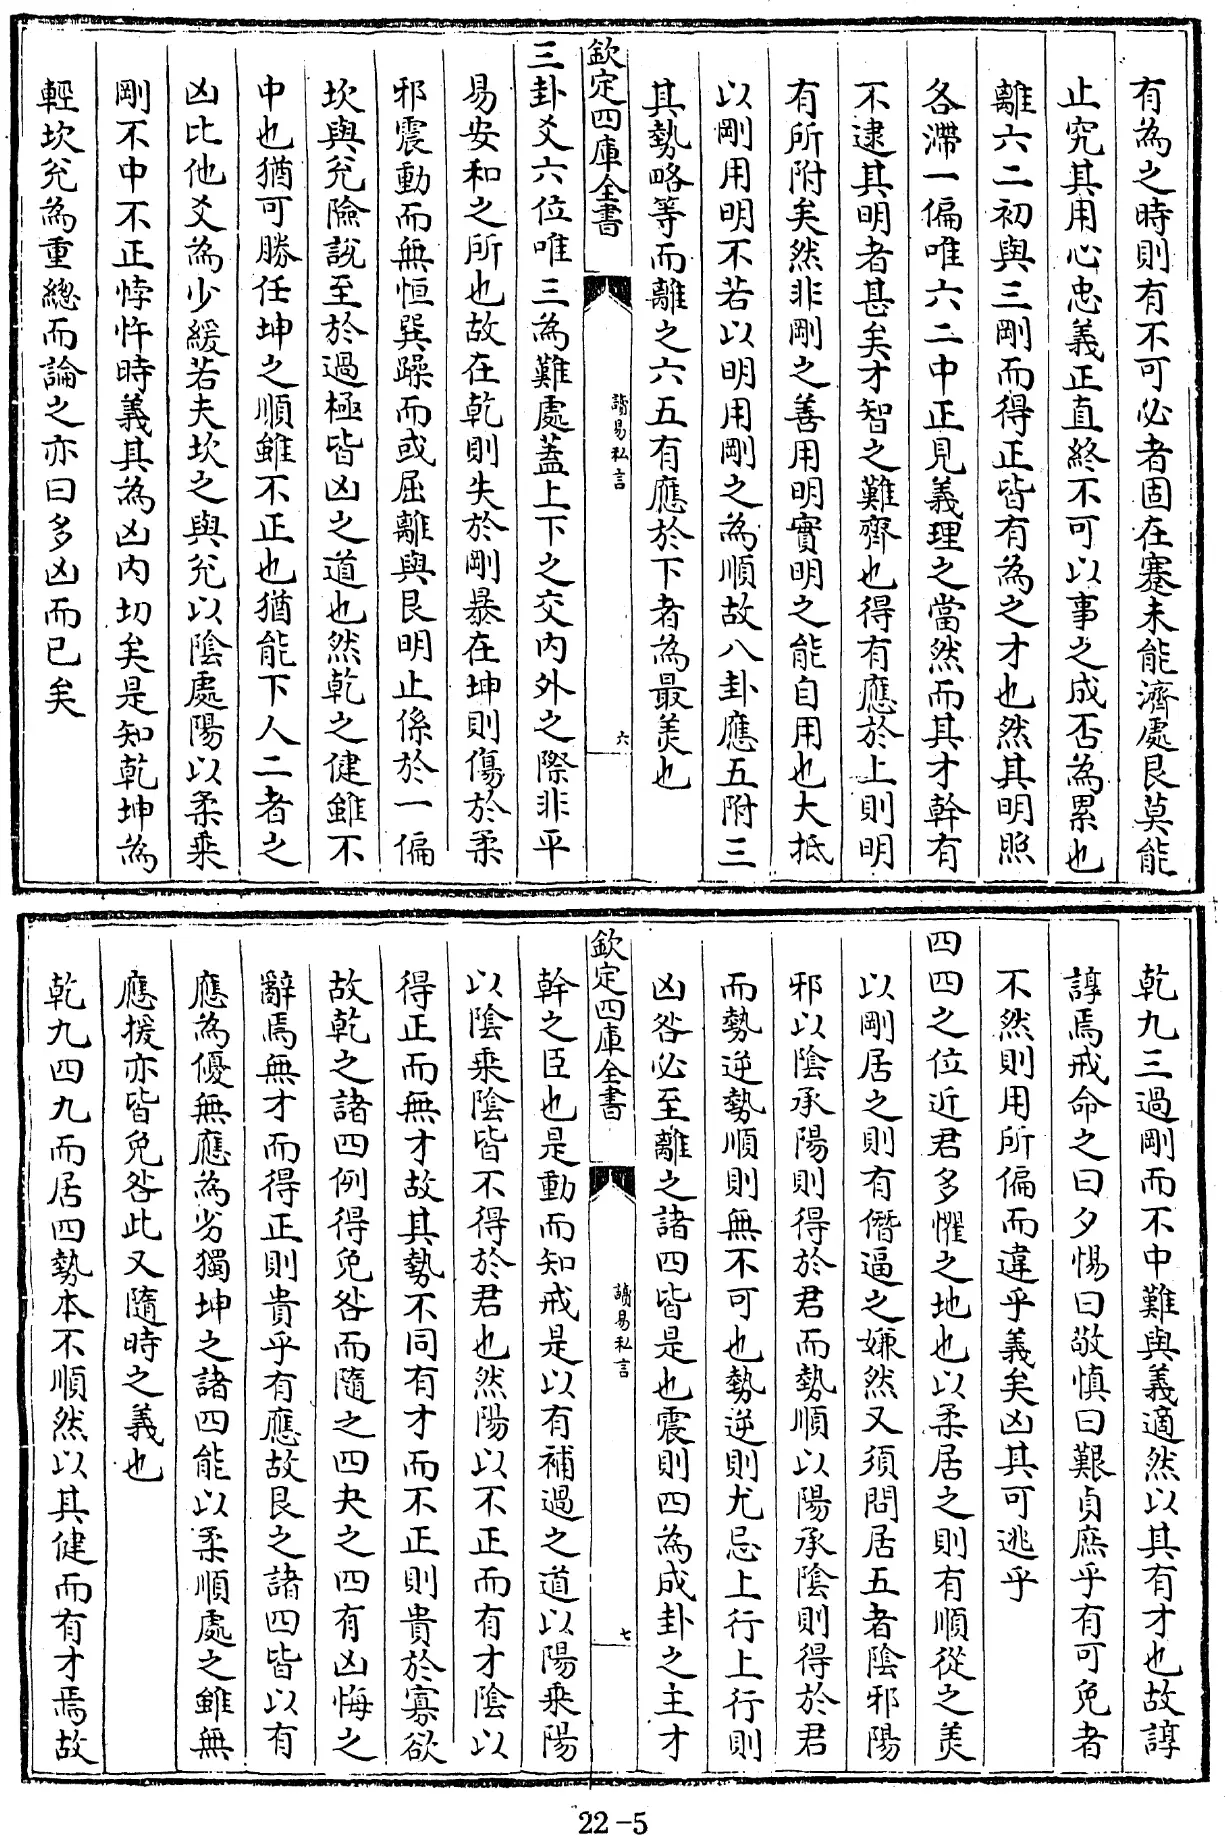 有為之時則有不可必者固在蹇未能濟處艮莫能
止究其用心忠義正直終不可以事之成否為累也
離六二初與三剛而得正皆有為之才也然其明照
各滯一偏唯六二中正見義理之當然而其才幹有
不逮其明者甚矣才智之難齊也得有應於上則明
有所附矣然非剛之善用明實明之能自用也大抵
以剛用明不若以明用剛之為順故八卦應五附三
其勢略等而離之六五有應於下者為最美也
欽定四庫全書
讀易私言
六
三卦爻六位唯三為難處蓋上下之交內外之際非平
易安和之所也故在乾則失於剛暴在坤則傷於柔
邪震動而無恒巽躁而或屈離與艮明止係於一偏
坎與兌險說至於過極皆凶之道也然乾之健雖不
中也猶可勝任坤之順雖不正也猶能下人二者之
凶比他爻為少緩若夫坎之與兌以陰處陽以柔乘
剛不中不正悖忤時義其為凶內切矣是知乾坤為
輕坎兌為重總而論之亦曰多凶而已矣
乾九三過剛而不中難與義適然以其有才也故諄
諄焉戒命之曰夕惕曰敬慎曰艱貞庶乎有可免者
不然則用所偏而違乎義矣凶其可逃乎
四四之位近君多懼之地也以柔居之則有順從之美
以剛居之則有僭逼之嫌然又須問居五者陰邪陽
邪以陰承陽則得於君而勢順以陽承陰則得於君
而勢逆勢順則無不可也勢逆則尤忌上行上行則
凶咎必至離之諸四皆是也震則四為成卦之主才
欽定四庫全書
讀易私言
七
幹之臣也是動而知戒是以有補過之道以陽乘陽
以陰乘陰皆不得於君也然陽以不正而有才陰以
得正而無才故其勢不同有才而不正則貴於寡欲
故乾之諸四例得免咎而隨之四夬之四有凶悔之
辭焉無才而得正則貴乎有應故艮之諸四皆以有
應為優無應為劣獨坤之諸四能以柔順處之雖無
應援亦皆免咎此又隨時之義也
乾九四九而居四勢本不順然以其健而有才焉故
22-5